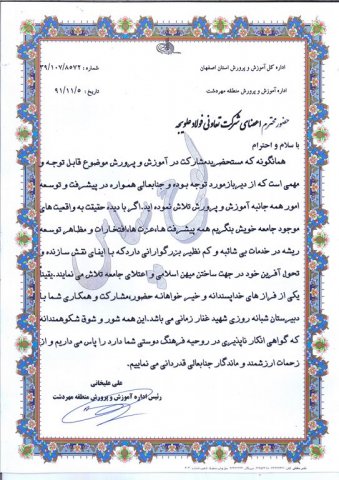 اداره کل آموزش و پرورش استان اصفهان
شماره : ۳۹/۱۰۷/۸۵۷۲
اداره آموزش و پرورش منطقه مهردشت
تاریخ : ۹۱/۱۱/۵
حضور محترم اعضای شرکت تعاونی فولاد علویجه
با سلام و احترام
همانگونه که مستحضریدمشارکت در آموزش و پرورش موضوع قابل توجه و
مهمی است که از دیربازمورد توجه بوده و جنابعالی همواره در پیشرفت و توسعه
امور همه جانبه آموزش و پرورش تلاش نموده اید.اگر با دیده حقیقت به واقعیت های
موجود جامعه خویش بنگریم همه پیشرفت ها،عزت ها،افتخارات و مظاهر توسعه
ریشه در خدمات بی شائبه و کم نظیر بزرگوارانی داردکه با ایفای نقش سازنده و
تحول آفرین خود در جهت ساختن میهن اسلامی و اعتلای جامعه تلاش می نمایند.یقینا
یکی از فراز های خداپسندانه و خیر خواهانه حضور،مشارکت و همکاری شما با
دبیرستان شبانه روزی شهید غفار زمانی می باشد.این همه شور و شوق شکوهمندانه
که گواهی انکار ناپذیری در روحیه فرهنگ دوستی شما دارد را پاس می داریم و از
زحمات ارزشمند و ماندگار جنابعالی قدردانی می نماییم.
علی علیخانی
رئیس اداره آموزش و پرورش منطقه مهردشت
لوح سپاس